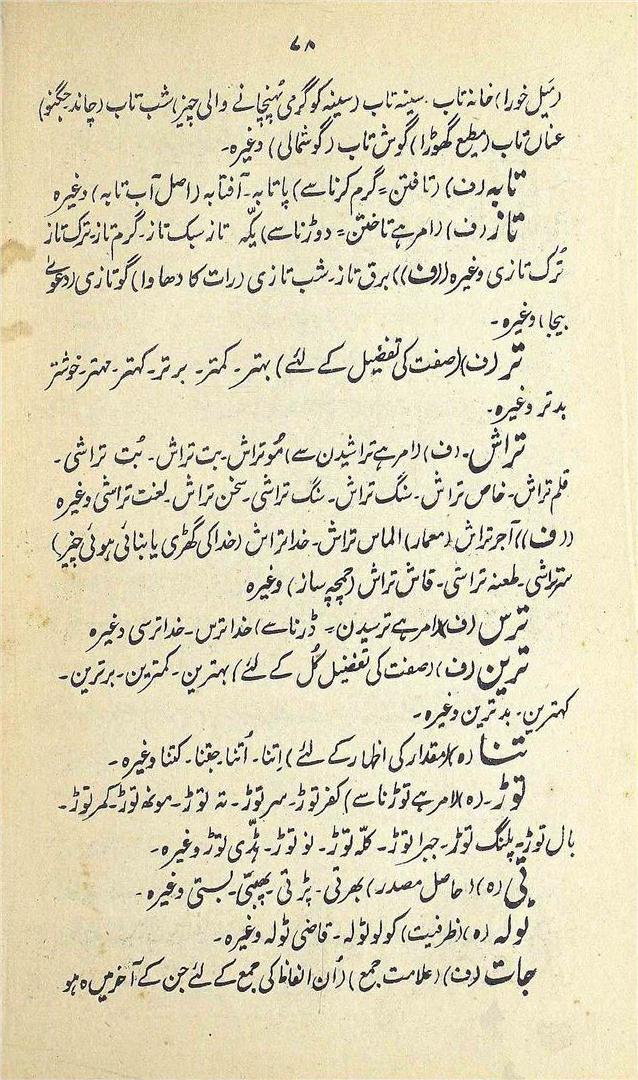 ۷۸
(میل خورا) خانہ تاب۔ سینہ تاب (سینہ کو گرمی پہنچانے والی چیز) شب تاب (چاند۔ جگنو)
عناں تاب (مطیع گھوڑا) گوش تاب (گوشمالی) وغیرہ۔
تابہ (ف) (تافتن = گرم کرنا سے) پاتابہ۔ آفتابہ (اصل آب تابہ) وغیرہ
تاز (ف) (امر ہے تاختن = دوڑنا سے) یکّہ تاز سبک تاز۔ گرم تاز۔ ترک تاز
تُرک تازی وغیرہ ((ف)) برق تاز۔ شب تازی (رات کا دھاوا) گوتازی (دعویٰ
بیجا) وغیرہ۔
تر (ف) (صفت کی تفضیل کے لئے) بہتر۔ کمتر۔ برتر۔ کہتر۔ مہتر۔ خوشتر
بدتر وغیرہ۔
تراش۔ (ف) (امر ہے تراشیدن سے) مُوتراش۔ بت تراش۔ بُت تراشی۔
قلم تراش۔ خاص تراش۔ سنگ تراش۔ سنگ تراشی۔ سخن تراش۔ لغت تراشی وغیرہ
((ف)) آجر تراش (معمار) الماس تراش۔ خدا تراش (خدا کی گھڑی یا بنائی ہوئی چیز)
سرتراشی۔ طعنہ تراشی۔ قاش تراش (چمچہ ساز) وغیرہ
ترس (ف) (امر ہے ترسیدن = ڈرنا سے) خدا ترس۔ خدا ترسی وغیرہ
ترین (ف) (صفت کی تفضیل کُل کے لئے) بہترین۔ کمترین۔ برترین۔
کہترین۔ بدترین وغیرہ۔
تنا (ہ) (مقدار کی اظہار کے لئے) اِتنا۔ اُتنا۔ جتنا۔ کتنا وغیرہ۔
توڑ۔ (ہ) (امر ہے توڑنا سے) کفر توڑ۔ سر توڑ۔ تہ توڑ۔ مونھ توڑ۔ کمر توڑ۔
بال توڑ۔ پلنگ توڑ۔ جبڑا توڑ۔ کلّہ توڑ۔ نو توڑ۔ ہڈّی توڑ وغیرہ۔
تی (ہ) (حاصل مصدر) بھرتی۔ پڑتی۔ پھبتی۔ بستی وغیرہ۔
ٹولہ (ہ) (ظرفیت) کولو ٹولہ۔ قاضی ٹولہ وغیرہ۔
جات (ف) (علامت جمع) (اُن الفاظ کی جمع کے لئے جن کے آخر میں ہ ہو